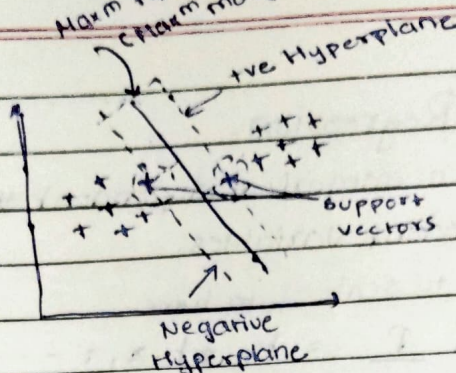 Maxm
(Maxm
+ve Hyperplane
support
vectors
Negative
Hyperplane